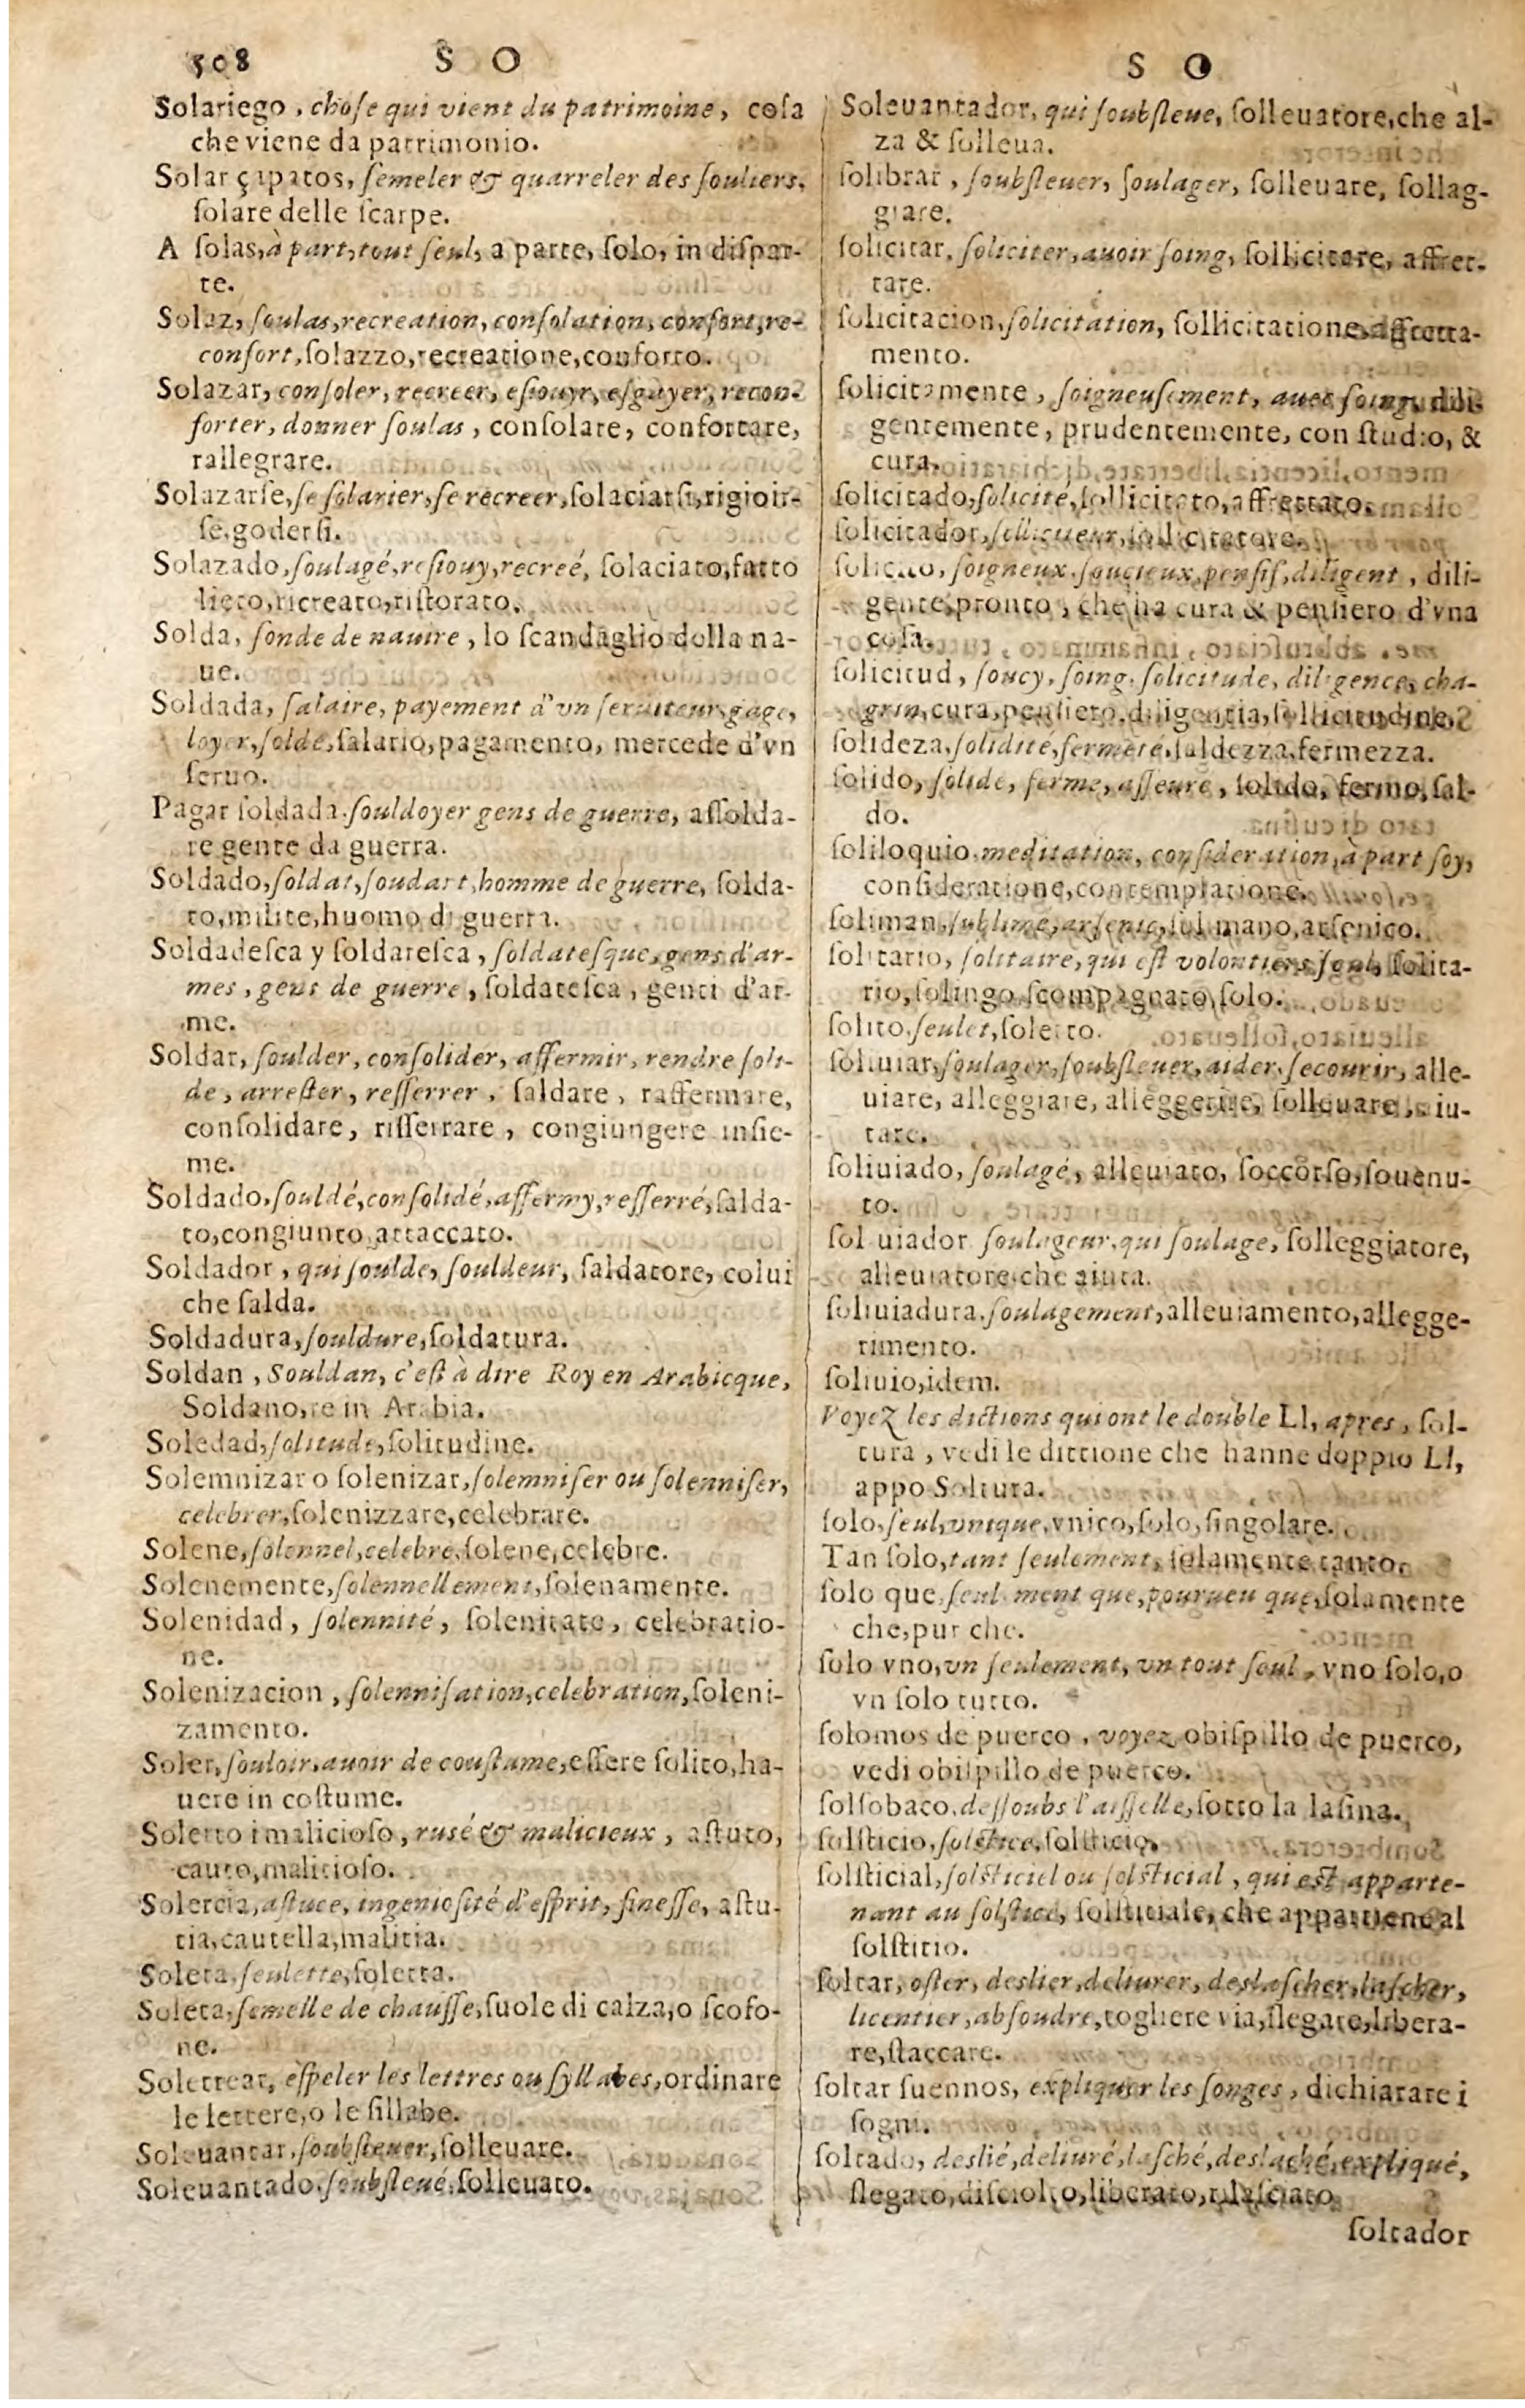 508 S O
Solariego, chose qui vient du patrimoine, cosa
che viene da patrimonio.
Solar çapatos, semeler & quarreler des souliers,
solare delle scarpe.
A solas, à part, tout seul, a parte, solo, in dispar-
te.
Solaz, soulas, recreation, consolation, confort, re-
confort, solazzo, recreatione, conforto.
Solazar, consoler, recreer, esiouyr, esgayer, recon-
forter, donner soulas, consolare, confortare,
rallegrare.
Solazarse, se solacier, se recreer, solaciarsi, rigioir-
se, godersi.
Solazado, soulagé, resiouy, recreé, solaciato, fatto
lieto, ricreato, ristorato.
Solda, sonde de nauire, lo scandaglio della na-
ue.
Soldada, salaire, payement d'vn seruiteur, gage,
loyer, solde, salario, pagamento, mercede d'vn
seruo.
Pagar soldada, souldoyer gens de guerre, assolda-
re gente da guerra.
Soldado, soldat, soudart, homme de guerre, solda-
to, milite, huomo di guerra.
Soldadesca y soldatesca, soldatesque, gens d'ar-
mes, gens de guerre, soldatesca, genti d'ar-
me.
Soldar, soulder, consolider, affermir, rendre soli-
de, arrester, resserrer, saldare, raffermare,
consolidare, risserrare, congiungere insie-
me.
Soldado, souldé, consolidé, affermy, resserré, salda-
to, congiunto, attaccato.
Soldador, qui soulde, souldeur, saldatore, colui
che salda.
Soldadura, souldure, soldatura.
Soldan, Souldan, c'est à dire Roy en Arabicque,
Soldano, re in Arabia.
Soledad, solitude, solitudine.
Solemnizar o solenizar, solemniser ou solenniser,
celebrer, solenizzare, celebrare.
Solene, solennel, celebre, solene, celebre.
Solenemente, solennellement, solenamente.
Solenidad, solennité, solenitate, celebratio-
ne.
Solenizacion, solennisation, celebration, soleni-
zamento.
Soler, souloir, auoir de coustume, essere solito, ha-
uere in costume.
Solerto i malicioso, rusé & malicieux, astuto,
cauto, malitioso.
Solercia, astuce, ingeniosité d'esprit, finesse, astu-
tia, cautella, malitia.
Soleta, seulette, soletta.
Soleta, semelle de chausse, suole di calza, o scofo-
ne.
Soletrear, espeler les lettres ou syllabes, ordinare
le lettere, o le sillabe.
Soleuantar, soubsleuer, solleuare.
Soleuantado, soubsleué, solleuato.
S O
Soleuantador, qui soubsleue, solleuatore, che al-
za & solleua.
solibrar, soubsleuer, soulager, solleuare, sollag-
giare.
solicitar, soliciter, auoir soing, sollicitare, affret-
tare.
solicitacion, solicitation, sollicitatione, affretta-
mento.
solicitamente, soigneusement, auec soing, dili-
gentemente, prudentemente, con studio, &
cura.
solicitado, solicité, sollicitato, affrettato.
solicitador, solliciteur, sollicitatore.
solicito, soigneux, soucieux, pensif, diligent, dili-
gente, pronto, che ha cura & pensiero d'vna
cosa.
solicitud, soucy, soing, solicitude, diligence, cha-
grin, cura, pensiero, diligentia, sollicitudine.
solideza, solidité, fermeté, saldezza, fermezza.
solido, solide, ferme, asseuré, solido, fermo, sal-
do.
soliloquio, meditation, consideration, à part soy,
consideratione, contemplatione.
soliman, sublimé, arsenic, solimano, arsenico.
solitario, solitaire, qui est volontiers seul, solita-
rio, solingo, scompagnato, solo.
solito, seulet, soletto.
soliuiar, soulager, soubsleuer, aider, secourir, alle-
uiare, alleggiare, alleggerire, solleuare, aiu-
tare.
soliuiado, soulagé, alleuiato, soccorso, souenu-
to.
soliuiador, soulageur, qui soulage, solleggiatore,
alleuiatore, che aiuta.
soliuiadura, soulagement, alleuiamento, allegge-
rimento.
soliuio, idem.
Voyez les dictions qui ont le double Ll, apres, sol-
tura, vedi le dittione che hanne doppio Ll,
appo Soltura.
solo, seul, vnique, vnico, solo, singolare.
Tan solo, tant seulement, solamente tanto.
solo que, seulement que, pourueu que, solamente
che, pur che.
solo vno, vn seulement, vn tout seul, vno solo, o
vn solo tutto.
solomos de puerco, voyez obispillo de puerco,
vedi obispillo de puerco.
solsobaco, dessoubs l'aisselle, sotto la lasina.
solsticio, solstice, solsticio.
solsticial, solsticiel ou solsticial, qui est apparte-
nant au solstice, solstitiale, che appartiene al
solstitio.
soltar, oster, deslier, deliurer, deslascher, lascher,
licentier, absoudre, togliere via, slegare, libera-
re, staccare.
soltar suennos, expliquer les songes, dichiarare i
sogni.
soltado, deslié, deliuré, lasché, deslaché, expliqué,
slegato, disciolto, liberato, rilasciato,
soltador